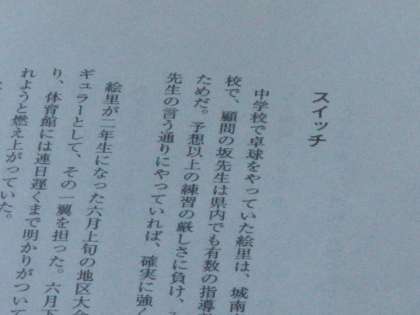 スイッチ
中学校で卓球をやっていた絵里は、城南
校で、顧問の坂先生は県内でも有数の指導
ためだ。予想以上の練習の厳しさに負け、
先生の言う通りにやっていれば、確実に強く
絵里が二年生になった六月上旬の地区大会
ギュラーとして、その一翼を担った。六月下
り、体育館には連日遅くまで明かりがついて
れようと燃え上がっていた。